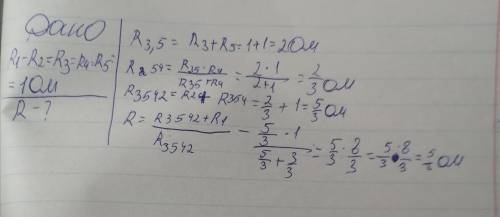 Дано
R1=R2=R3=R4=R5=
=1Ом
R-?
R3,5 = R3+R5=1+1=2Ом
R354 = R35·R4 / R35+R4 = 2·1 / 2+1 = 2/3 Ом
R3542=R2+ R354= 2/3 + 1= 5/3 Ом
R= R3542+R1 / R3542 - 5/3 · 1 / 5/3 + 3/3 = 5/3 : 8/3 = 5/3 · 8/3 = 5/8 Ом